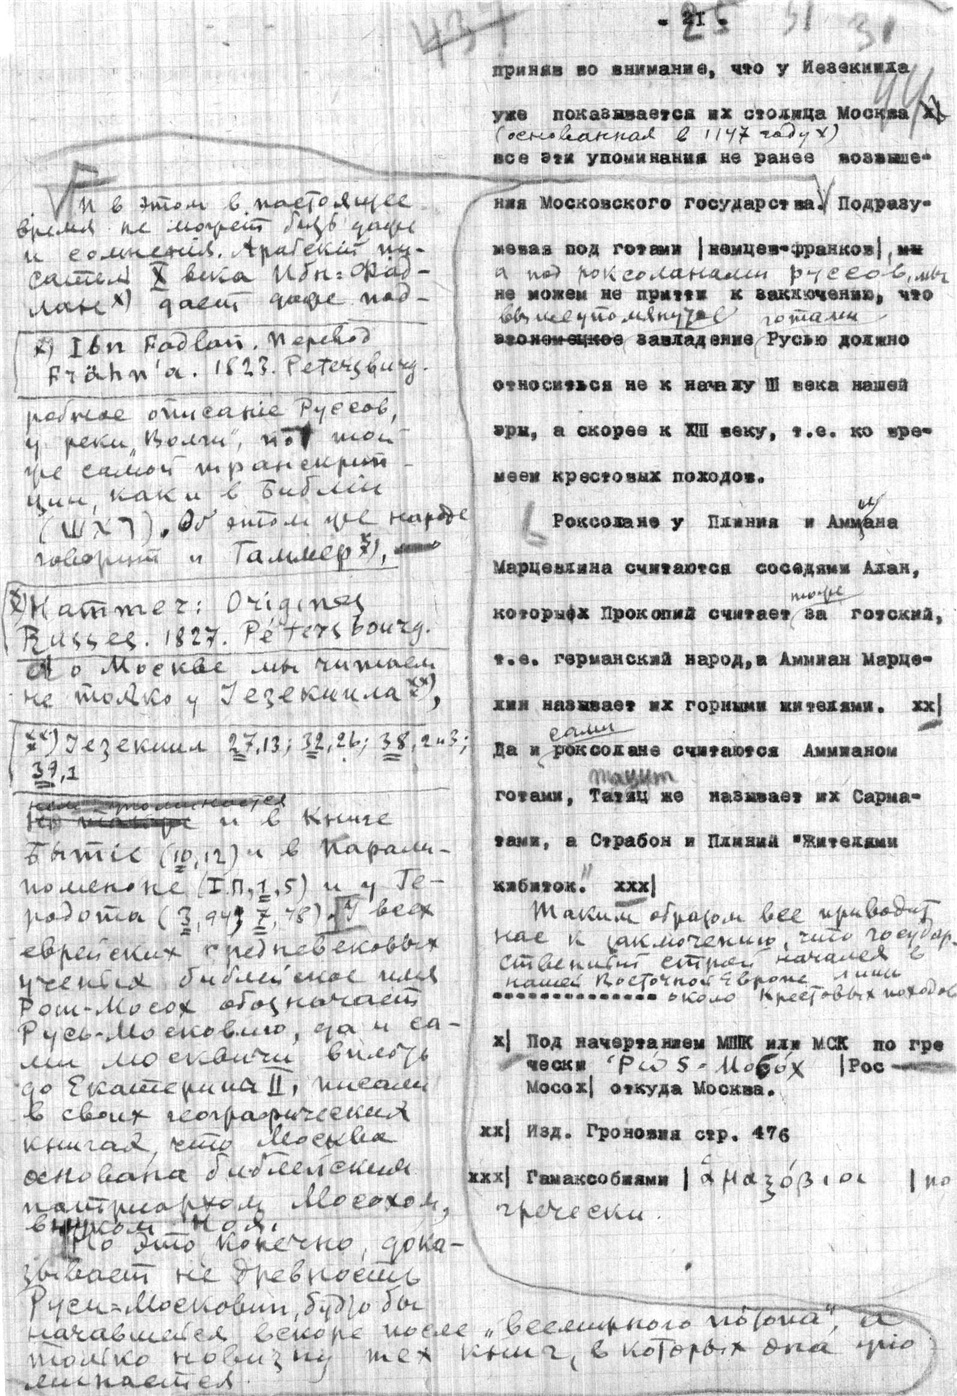 437
- 21 -
25
31
31
44
приняв во внимание, что у Иезекиила
уже показывается их столица Москва х)
(основанная в 1147 году х)
все эти упоминания не ранее возвыше-
ния Московского государства. Подразу-
мевая под готами |немцев-франков|, мы
а под роксоланами руссов, мы
не можем не притти к заключению, что
вышеупомянутое готами
завладение Русью должно
относиться не к началу III века нашей
эры, а скорее к XIII веку, т.е. ко вре-
меем крестовых походов.
Роксолане у Плиния и Аммиана
Марцеллина считаются соседями Алан,
тоже
которыфх Прокопий считает за готский,
т.е. германский народ, а Аммиан Марце-
лин называет их горными жителями. хх|
сами
Да и роксолане считаются Аммианом
Тацит
готами, Татяц же называет их Сарма-
тами, а Страбон и Плиний "Жителями
кибиток." ххх|
Таким образом все приводит
нас к заключению, что государ-
ственный строй начался в
нашей Восточной Европе лишь
около Крестовых походов
х| Под начертанием МШК или МСК по гре
чески Ῥώς-Μοσόχ |Рос
Мосох| откуда Москва.
хх| Изд. Гроновия стр. 476
ххх| Гамаксобиями | ἁμαξόβιοι | по
гречески.
И в этом в настоящее
время не может быть даже
и сомнения. Арабский пи-
сатель X века Ибн-Фад-
лан х) дает даже под-
х) Ibn Fadlan. Перевод
Frähn'a. 1823. Petersburg.
робное описание Руссов,
у реки "Волги", по той
же самой транскрип-
ции, как и в Библии
(ШХЛ). Об этом же народе
говорит и Гаммер х),
х) Hammer: Origines
Russes. 1827. Pétersbourg.
А о Москве мы читаем
не только у Іезекиила хх),
хх) Іезекиил 27,13; 32,26; 38,2 и 3;
39,1
но также и в Книге
Бытіе (10,12) и в Парали-
поменоне (I П,1,5) и у Ге-
родота (3,94; 7,78). У всех
еврейских средневековых
ученых библейское имя
Рош-Мосох обозначает
Русь-Московию, да и са-
ми москвичи вплоть
до Екатерины II, писали
в своих географических
книгах, что Москва
основана библейским
патриархом Мосохом,
внуком Ноя.
Но это, конечно, дока-
зывает не древность
Руси-Московии, будто бы
начавшейся вскоре после "всемирного потопа", а
только новизну тех книг, в которых она упо
минается.